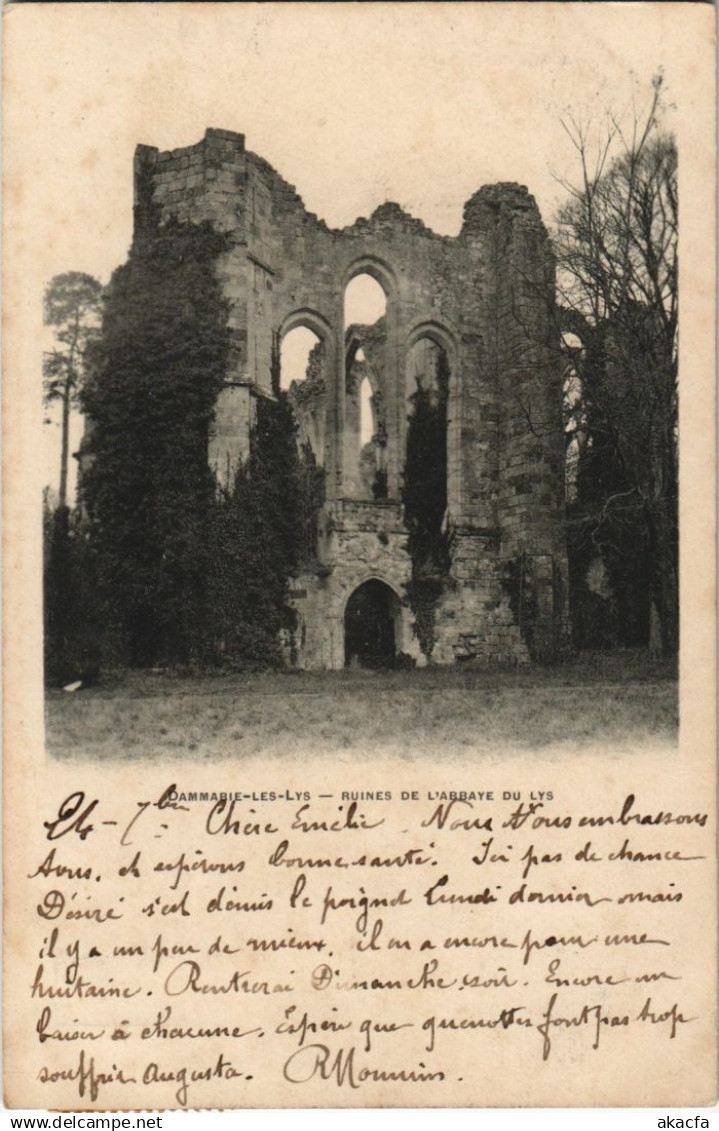 DAMMARIE-LES-LYS — RUINES DE L'ABBAYE DU LYS
24 - 7bre Chère Emélie. Nous Vous embrassons
tous, et espérons bonne santé. Ici pas de chance
Désiré s'est démis le poignet Lundi dernier mais
il y a un peu de mieux, il en a encore pour une
huitaine. Rentrerai Dimanche soir. Encore un
baiser à chacune. Espère que quenottes font pas trop
souffrir Augusta.
akacfa
www.akacfa.com